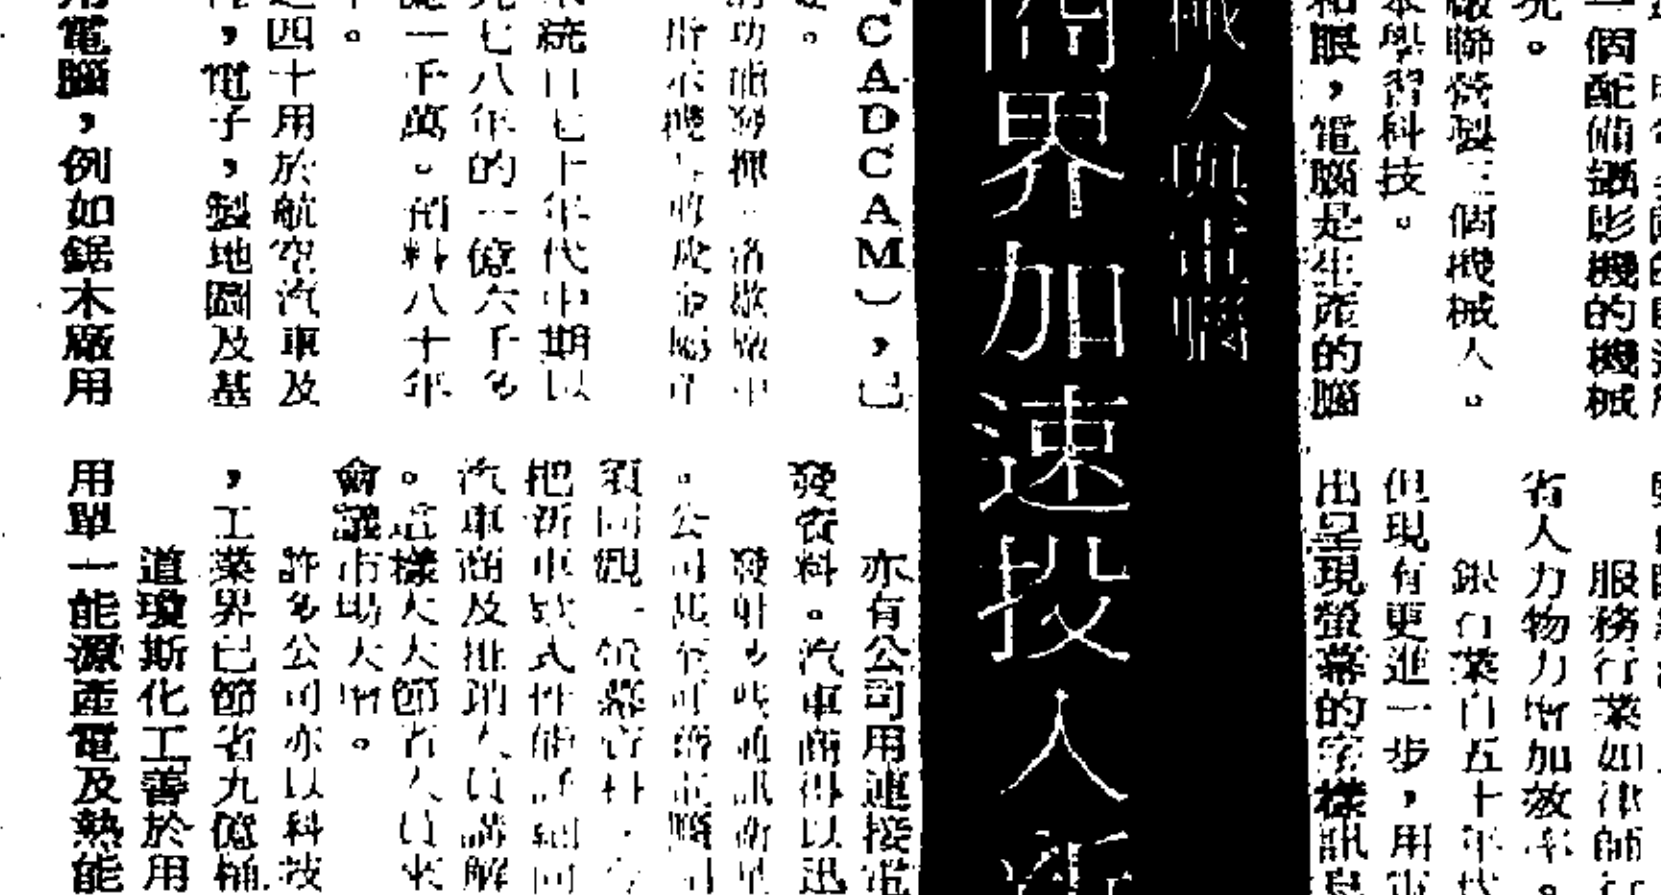 一個配備攝影機的機械
究。
廠聯營製三個機械人。
本學習科技。
和眼，電腦是生產的腦
服務行業如律師行
省人力物力增加效率。
銀行業自五十年代
但現有更進一步，用電
出呈現螢幕的字樣訊息
械人與電腦
界加速投入
CADCAM），已
的功能發揮
指示機
系統自七十年代中期以
九七八年的一億六千多
從一千萬。預料八十年
近四十用於航空汽車及
，電子，製地圖及基
用電腦，例如鋸木廠用
亦有公司用連接電
發資料。汽車商得以迅
發射 通訊衛星
。公司甚至可
須同觀一螢幕資料
把新車款式性能詳細向
汽車商及推銷人員講解
。這樣大大節省人員來
會議市場大增。
許多公司亦以科技
，工業界已節省九億桶
道瓊斯化工善於用
用單一能源產電及熱能